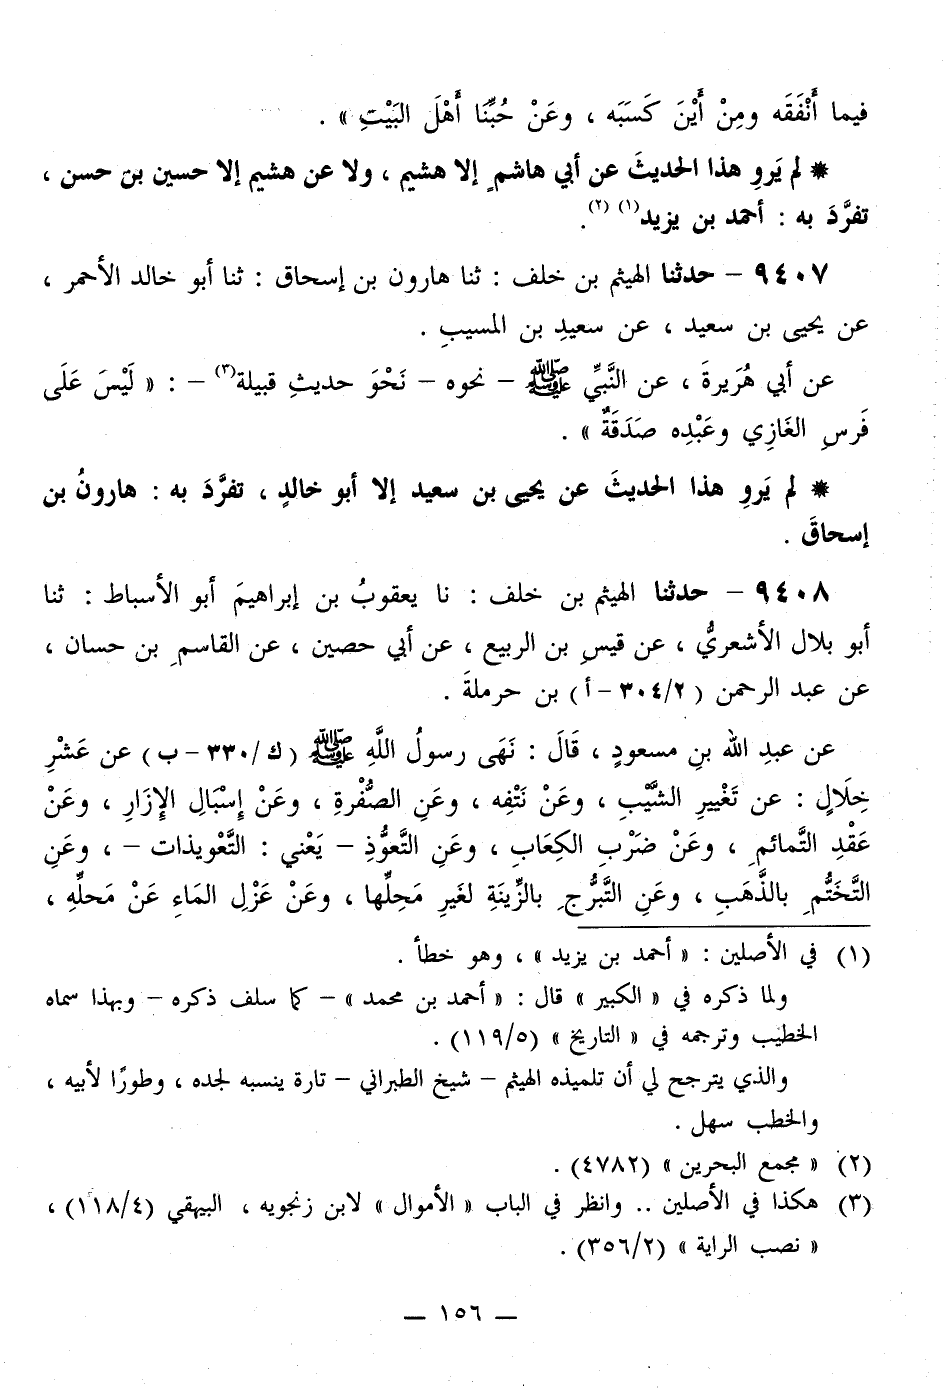 فيما أَنْفَقَه ومِنْ أَيْنَ كَسَبَه ، وعَنْ حُبِّنَا أَهْلَ البَيْتِ » .
* لم يَروِ هذا الحديثَ عن أبي هاشمٍ إلا هشيم ، ولا عن هشيم إلا حسين بن حسن ،
تفرَّدَ به : أحمد بن يزيد(١) (٢).
٩٤٠٧ – حدثنا الهيثم بن خلف : ثنا هارون بن إسحاق : ثنا أبو خالد الأحمر ،
عن يحيى بن سعيد ، عن سعيدِ بن المسيبِ .
عن أبي هُرَيرةَ ، عن النَّبيِّ ﷺ – نحوه – نَحْوَ حديثِ قبيلة(٣) – : « لَيْسَ عَلَى
فَرسِ الغَازِي وعَبْدِه صَدَقَةٌ » .
* لم يَروِ هذا الحديثَ عن يحيى بن سعيد إلا أبو خالدٍ ، تفرَّدَ به : هارونُ بن
إسحاقَ .
٩٤٠٨ – حدثنا الهيثم بن خلف : نا يعقوبُ بن إبراهيمَ أبو الأسباط : ثنا
أبو بلال الأشعريُّ ، عن قيسِ بن الربيع ، عن أبي حصين ، عن القاسمِ بن حسان ،
عن عبد الرحمن ( ٣٠٤/٢ – أ ) بن حرملةَ .
عن عبدِ الله بنِ مسعودٍ ، قَالَ : نَهَى رسولُ اللَّهِ ﷺ ( ك/٣٣٠ – ب ) عن عَشْرِ
خِلَالٍ : عن تَغْييرِ الشَّيْبِ ، وعَنْ نَتْفِه ، وعَنِ الصُّفْرةِ ، وعَنْ إسْبَالِ الإزَارِ ، وعَنْ
عَقْدِ التَّمائمِ ، وعَنْ ضَرْبِ الكِعَابِ ، وعَنِ التَّعوُّذِ – يَعْني : التَّعْويذات – ، وعَنِ
التَّخَتُّمِ بالذَّهَبِ ، وعَنِ التَّبرُّجِ بالزِّينَةِ لغَيرِ مَحِلِّها ، وعَنْ عَزْلِ الماءِ عَنْ مَحلِّهِ ،
(١) في الأصلين : « أحمد بن يزيد » ، وهو خطأ .
ولما ذكره في « الكبير » قال : « أحمد بن محمد » – كما سلف ذكره – وبهذا سماه
الخطيب وترجمه في « التاريخ » (١١٩/٥) .
والذي يترجح لي أن تلميذه الهيثم – شيخ الطبراني – تارة ينسبه لجده ، وطورًا لأبيه ،
والخطب سهل .
(٢) « مجمع البحرين » (٤٧٨٢) .
(٣) هكذا في الأصلين .. وانظر في الباب « الأموال » لابن زنجويه ، البيهقي (١١٨/٤) ،
« نصب الراية » (٣٥٦/٢) .
— ١٥٦ —